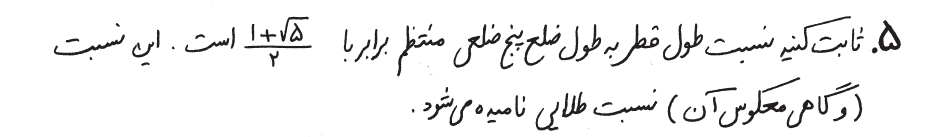 ۵. ثابت کنید نسبت طول قطر به طول ضلع پنج ضلعی منتظم برابر با ۱+√۵/۲ است. این نسبت
(و گاهی معکوس آن) نسبت طلایی نامیده می‌شود.